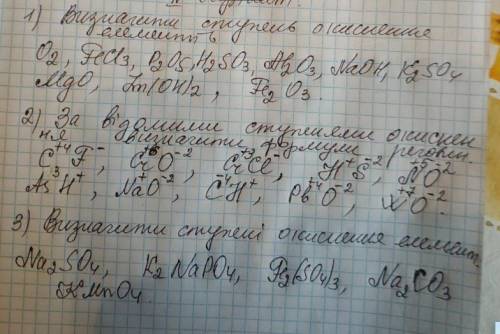 1) Визначити ступень окиснення
елементів
O₂, FeCl₃, P₂O₅, H₂SO₃, Al₂O₃, NaOH, K₂SO₄
MgO, Zn(OH)₂, Fe₂O₃.
2) За відомими ступенями окиснен
ня визначити формули речовин.
C⁺⁴F⁻, O⁻², Cl⁻, H⁺S⁻², N⁺⁵O⁻²
As⁻³H⁺, Na⁺O⁻², C⁻⁴H⁺, Pb⁺⁴O⁻², O⁻².
3) Визначити ступені окиснення елемент.
Na₂SO₄, K₂NaPO₄, Fe₂(SO₄)₃, Na₂CO₃
KMnO₄.